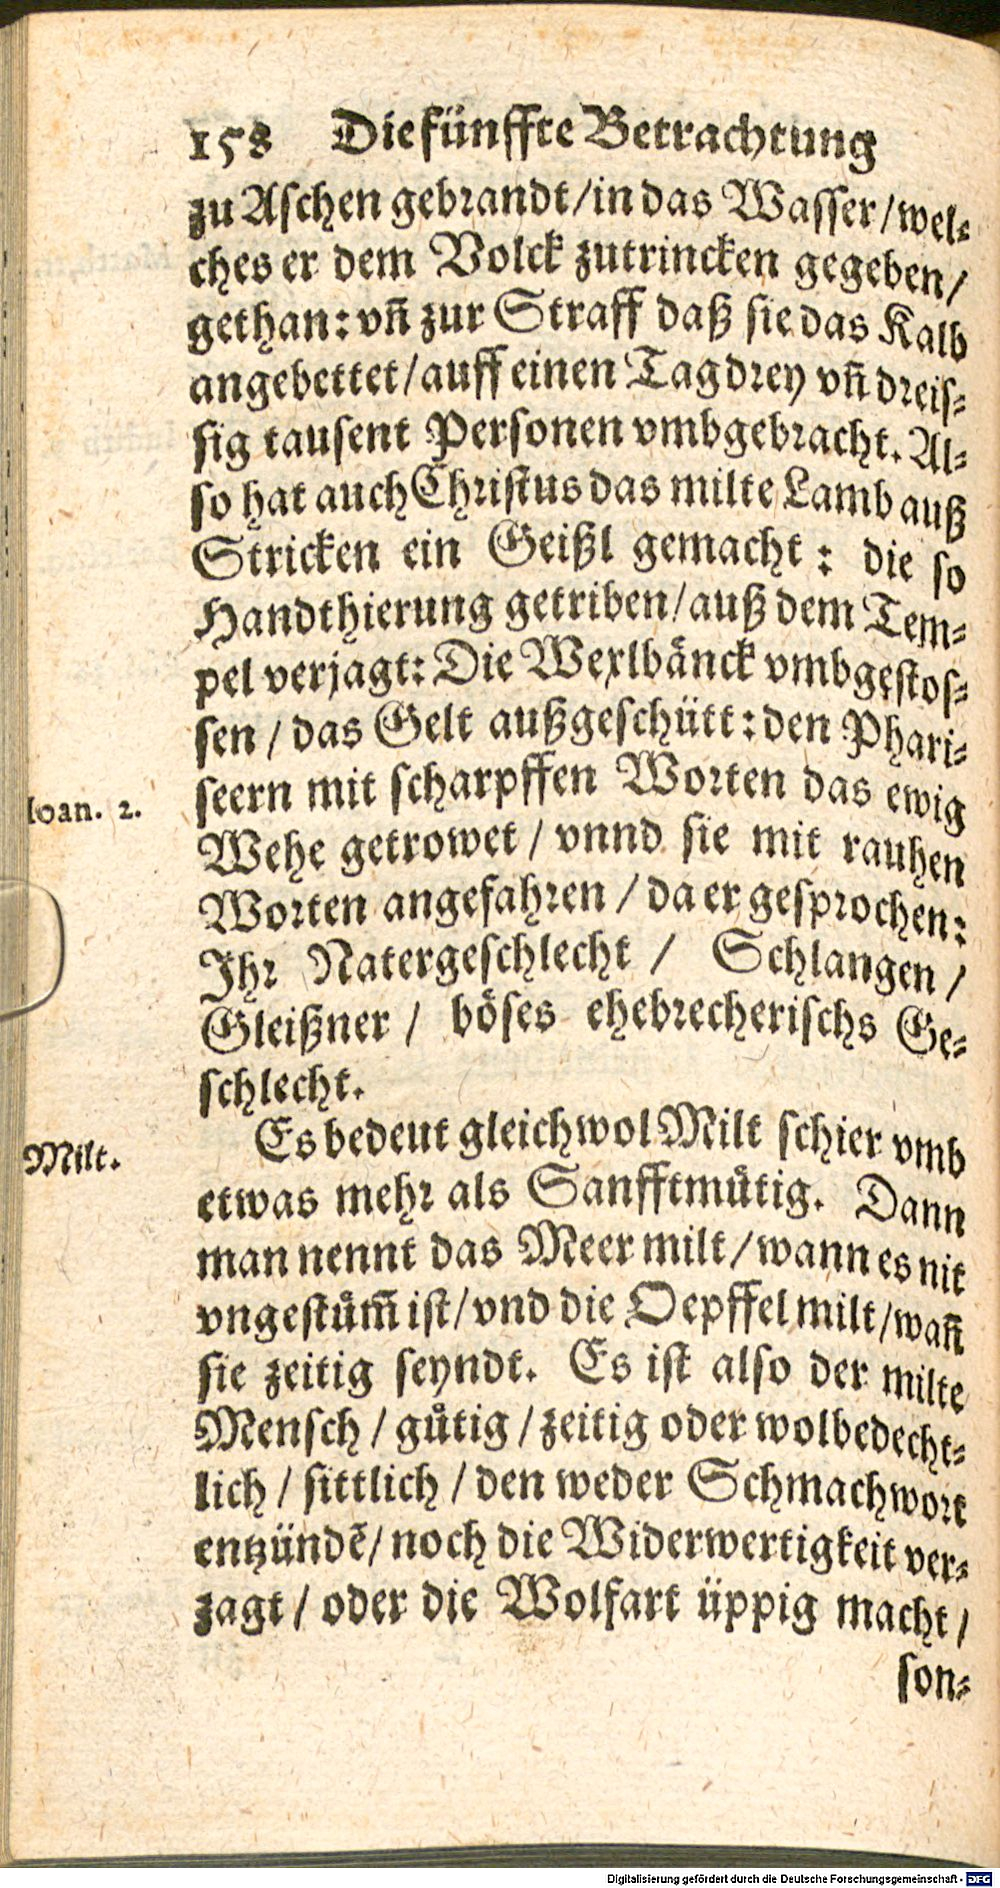 158 Die fünffte Betrachtung
zu Aschen gebrandt/in das Wasser/wel-
ches er dem Volck zutrincken gegeben/
gethan: vn̄ zur Straff daß sie das Kalb
angebettet/auff einen Tag drey vn̄ dreis-
sig tausent Personen vmbgebracht. Al-
so hat auch Christus das milte Lamb auß
Stricken ein Geißl gemacht: die so
Handthierung getriben/auß dem Tem-
pel verjagt: Die Wexlbänck vmbgestos-
sen / das Gelt außgeschütt: den Phari-
seern mit scharpffen Worten das ewig
Ioan. 2.
Wehe getrowet / vnnd sie mit rauhen
Worten angefahren / da er gesprochen:
Ihr Natergeschlecht / Schlangen /
Gleißner / böses ehebrecherischs Ge-
schlecht.
Es bedeut gleichwol Milt schier vmb
Milt.
etwas mehr als Sanfftmuͤtig. Dann
man nennt das Meer milt/wann es nit
vngestuͤm̄ ist/vnd die Oepffel milt/wan̄
sie zeitig seyndt. Es ist also der milte
Mensch / guͤtig / zeitig oder wolbedecht-
lich / sittlich / den weder Schmachwort
entzündẽ/ noch die Widerwertigkeit ver-
zagt / oder die Wolfart üppig macht /
son-
Digitalisierung gefördert durch die Deutsche Forschungsgemeinschaft - DFG